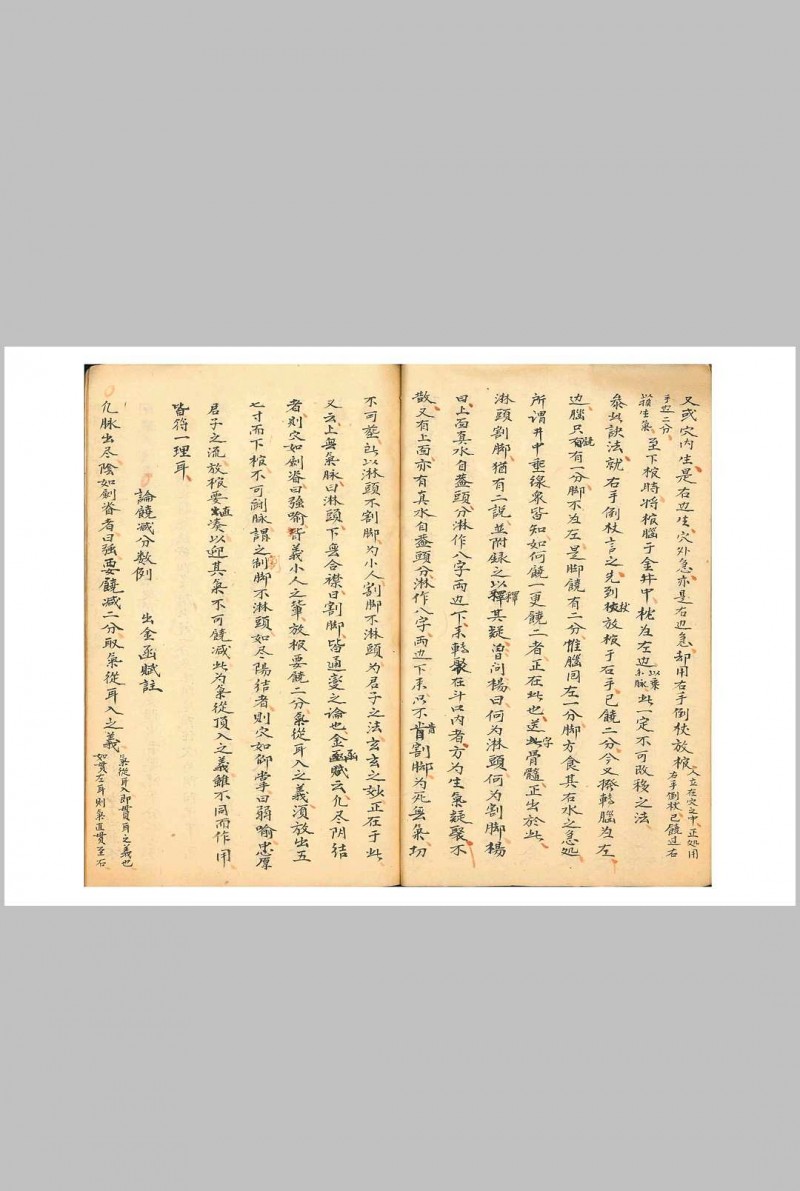 又或穴内生是右边生穴外急亦是右边急却用右手倒杖放棺人立在穴之中正处用右手倒杖已饒过右
手边二分
至下棺時将棺腦子金井中枕为左边以乘此一定不可改移之法
叅此訣法就右手倒杖言之先到杖放棺于右手已饒二分今又撥轉腦为左
边腦只饒有一分脚不为左是脚饒有二分惟腦囬左一分脚方食其右水之急処
所谓井中垂線衆皆知如何饒一更饒二者正在此也送字骨髓正出於此
淋頭割脚猶有二説並附録之以釋其疑曽问楊曰何为淋頭何为割脚楊
曰上面真水自蓋頭分淋作八字両边下来轉聚在斗口内者方为生氣凝聚不
散又有上面亦有真水自蓋頭分淋作八字両边下来只不肯割脚为死無氣切
不可塟此以淋頭不割脚为小人割脚不淋頭为君子之法玄玄之妙正在于此
又云上無氣脉曰淋頭下無合襟曰割脚皆通变之论也金函赋云凢尽阴结
者則穴如剑脊曰强喻皆義小人之輩放棺要饒二分氣從耳入之義須放出五
七寸而下棺不可剐脉謂之割脚不淋頭如尽陽结者則穴如仰掌曰弱喻忠厚
君子之流放棺要直凑以迎其氣不可饒减此为氣從頂入之義雖不同而作用
皆符一理耳
論饒减分数例　出金函賦註
凢脉出尽陰如剑脊者曰强要饒减二分取氣從耳入之義氣從耳入即貫耳之義也
如貫左耳則氣直貫至右